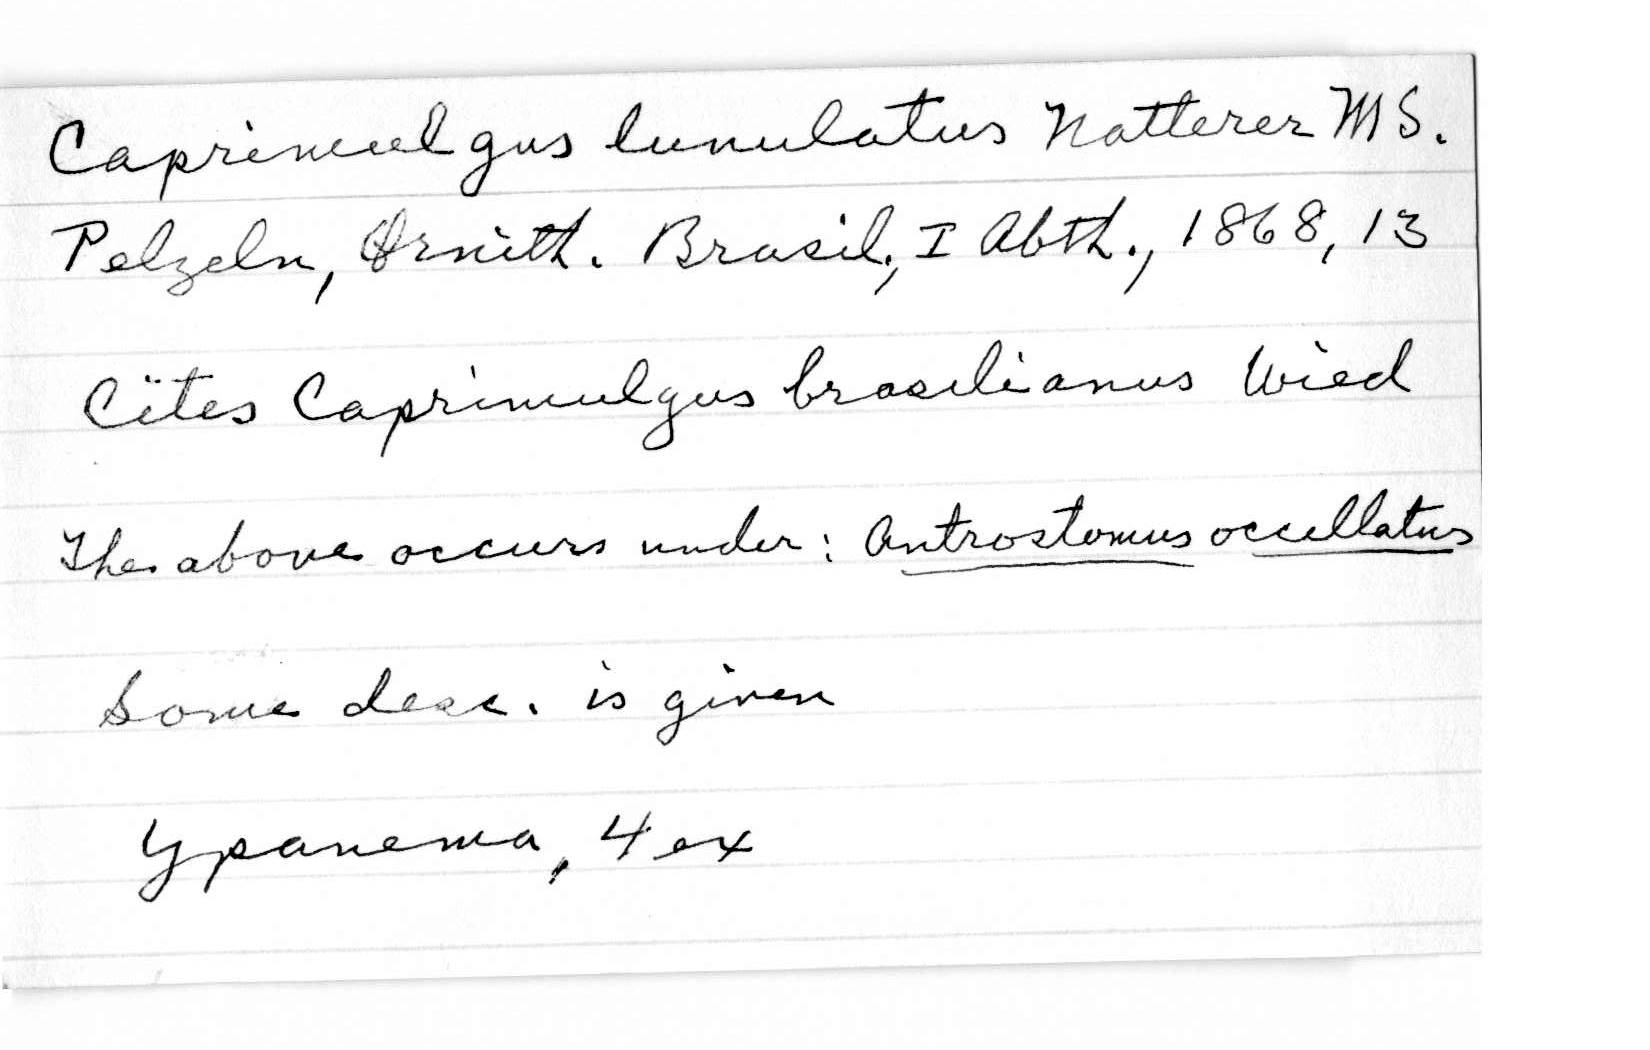 Caprimulgus lunulatus Natterer MS.
Pelzeln, Ornith. Brasil., I Abth., 1868, 13
Cites Caprimulgus brasilianus Wied
The above occurs under: Antrostomus occellatus
Some desc. is given
Ypanema, 4 ex